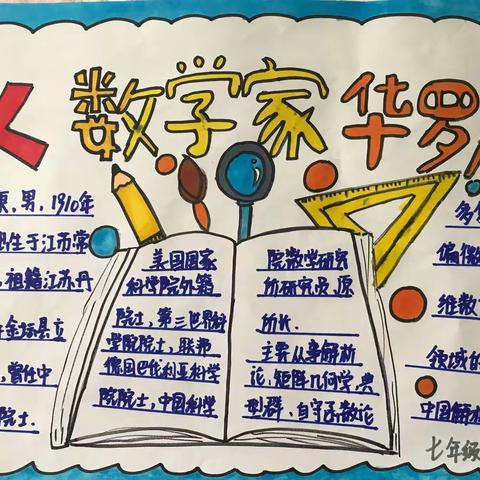 人 数学家 华罗
庚，男，1910年
出生于江苏常
，祖籍江苏丹
金坛县立
，曾任中
院士．
美国国家
科学院外籍
院士，第三世界科
学院院士，联邦
德国巴伐利亚科学
院院士，中国科学
院数学研究
所研究员、原
所长．
主要从事解析
论、矩阵几何学、典
型群、自守函数论
多
偏微
维数
领域的
中国解析
七年级